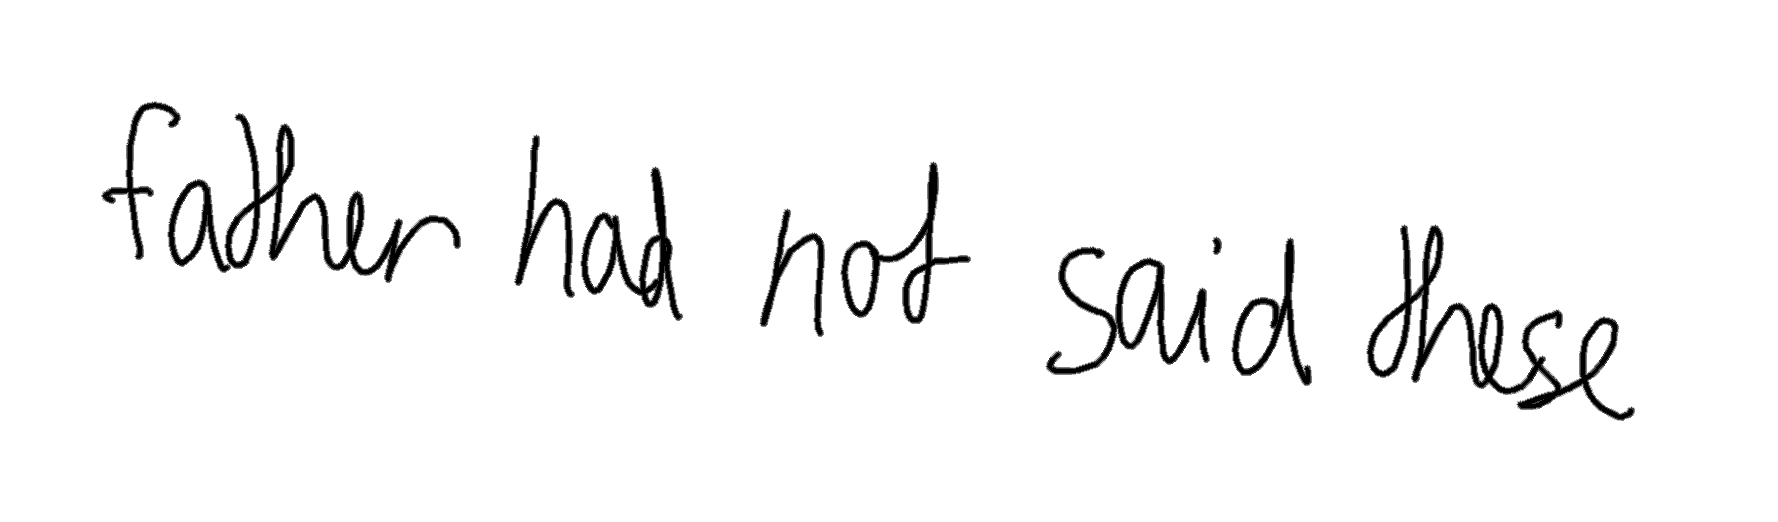 father had not said these